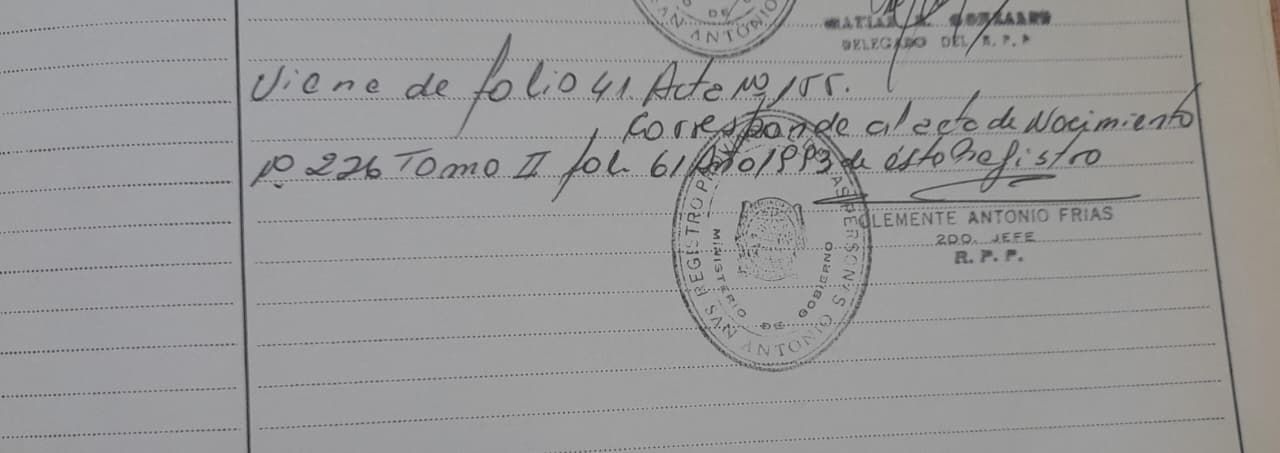 DE
SAN ANTONIO
DELEGADO DEL R. P. P
Viene de folio 41. Acta Nº 155.
Corresponde al acta de Nacimiento
Nº 226 Tomo II fol. 61 Año 1993 de ésto Registro
CLEMENTE ANTONIO FRIAS
2DO. JEFE
R. P. P.
REGISTRO
LAS PERSONAS
MINISTERIO DE GOBIERNO
SAN ANTONIO